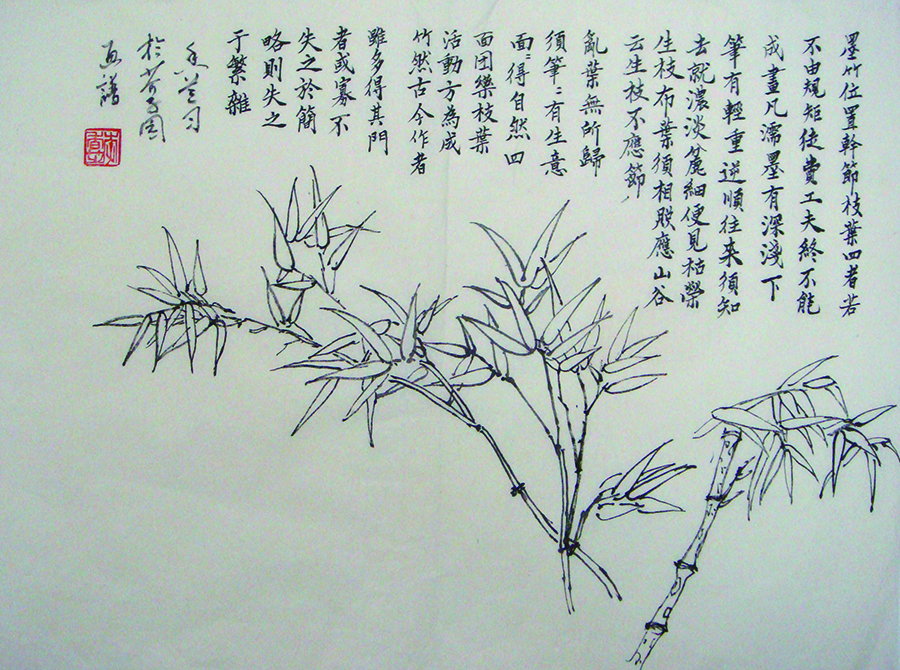 墨竹位置幹節枝葉四者若
不由規矩徒費工夫終不能
成畫凡濡墨有深淺下
筆有輕重逆順往来須知
去就濃淡麄細便見枯榮
生枝布葉須相應山谷
云生枝不應節
亂葉無所歸
須筆〻有生意
面〻得自然四
面团欒枝葉
活動方為成
竹然古今作者
雖多得其門
者或寡不
失之於簡
略則失之
于繁雜
於芥子園
画譜